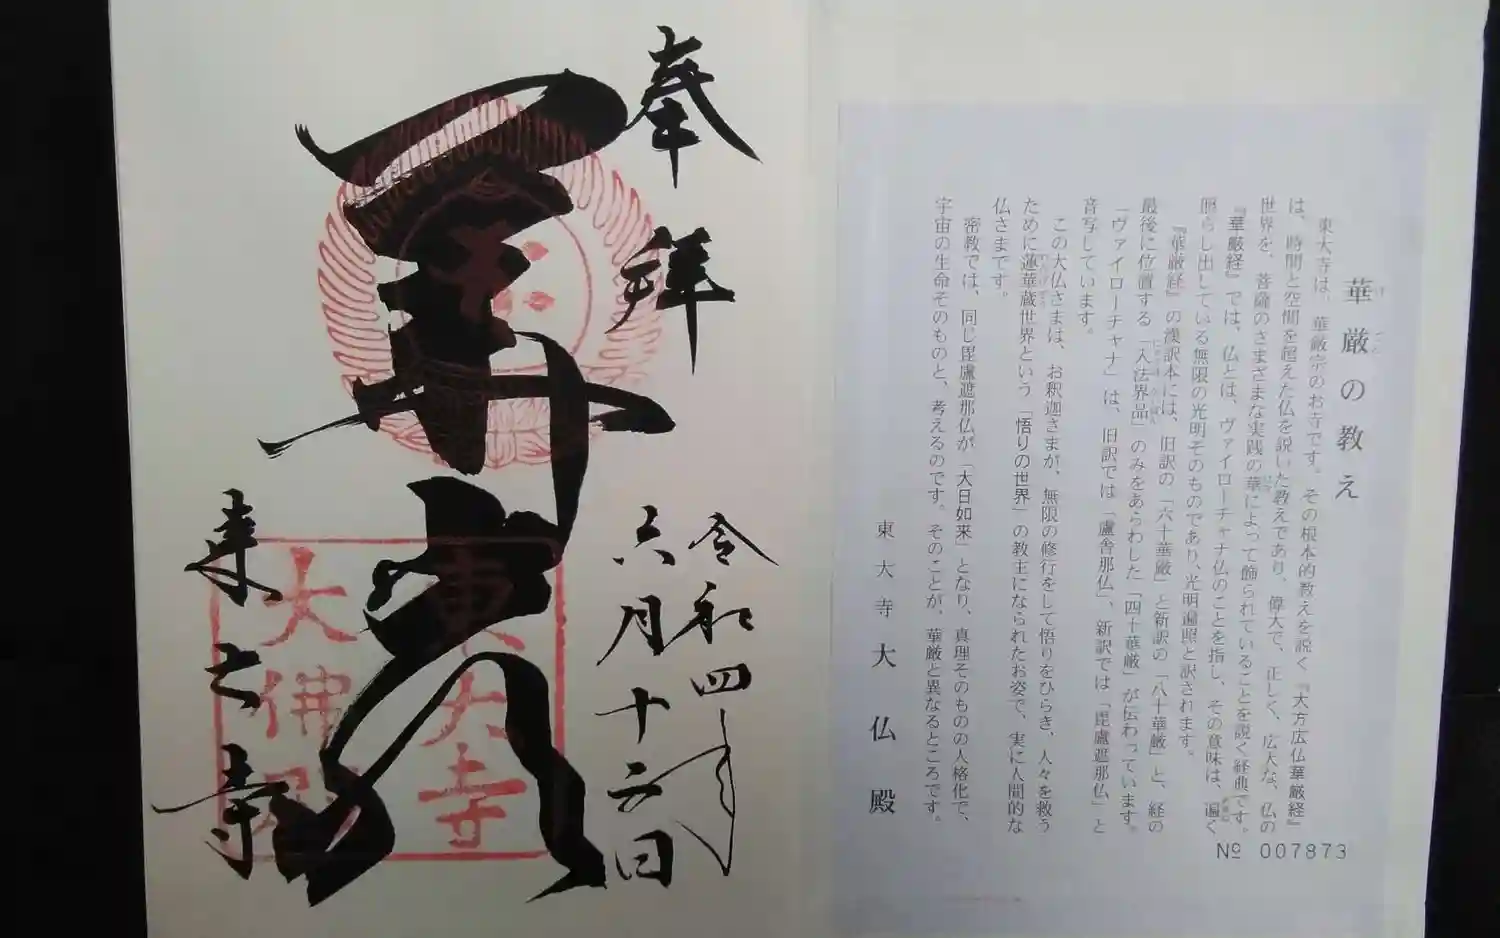 華厳の教え
東大寺は、華厳宗のお寺です。その根本的教えを説く『大方広仏華厳経』
は、時間と空間を超えた仏を説いた教えであり、偉大で、正しく、広大な、仏の
世界を、菩薩のさまざまな実践の華によって飾られていることを説く経典です。
『華厳経』では、仏とは、ヴァイローチャナ仏のことを指し、その意味は、遍く
照らし出している無限の光明そのものであり、光明遍照と訳されます。
『華厳経』の漢訳本には、旧訳の「六十華厳」と新訳の「八十華厳」と、経の
最後に位置する「入法界品」のみをあらわした「四十華厳」が伝わっています。
「ヴァイローチャナ」は、旧訳では「盧舎那仏」、新訳では「毘盧遮那仏」と
音写しています。
この大仏さまは、お釈迦さまが、無限の修行をして悟りをひらき、人々を救う
ために蓮華蔵世界という「悟りの世界」の教主になられたお姿で、実に人間的な
仏さまです。
密教では、同じ毘盧遮那仏が「大日如来」となり、真理そのものの人格化で、
宇宙の生命そのものと、考えるのです。そのことが、華厳と異なるところです。
東大寺大仏殿
№ 007873
奉拝
令和四年
六月十六日
華厳
東大寺
東大寺
大佛殿